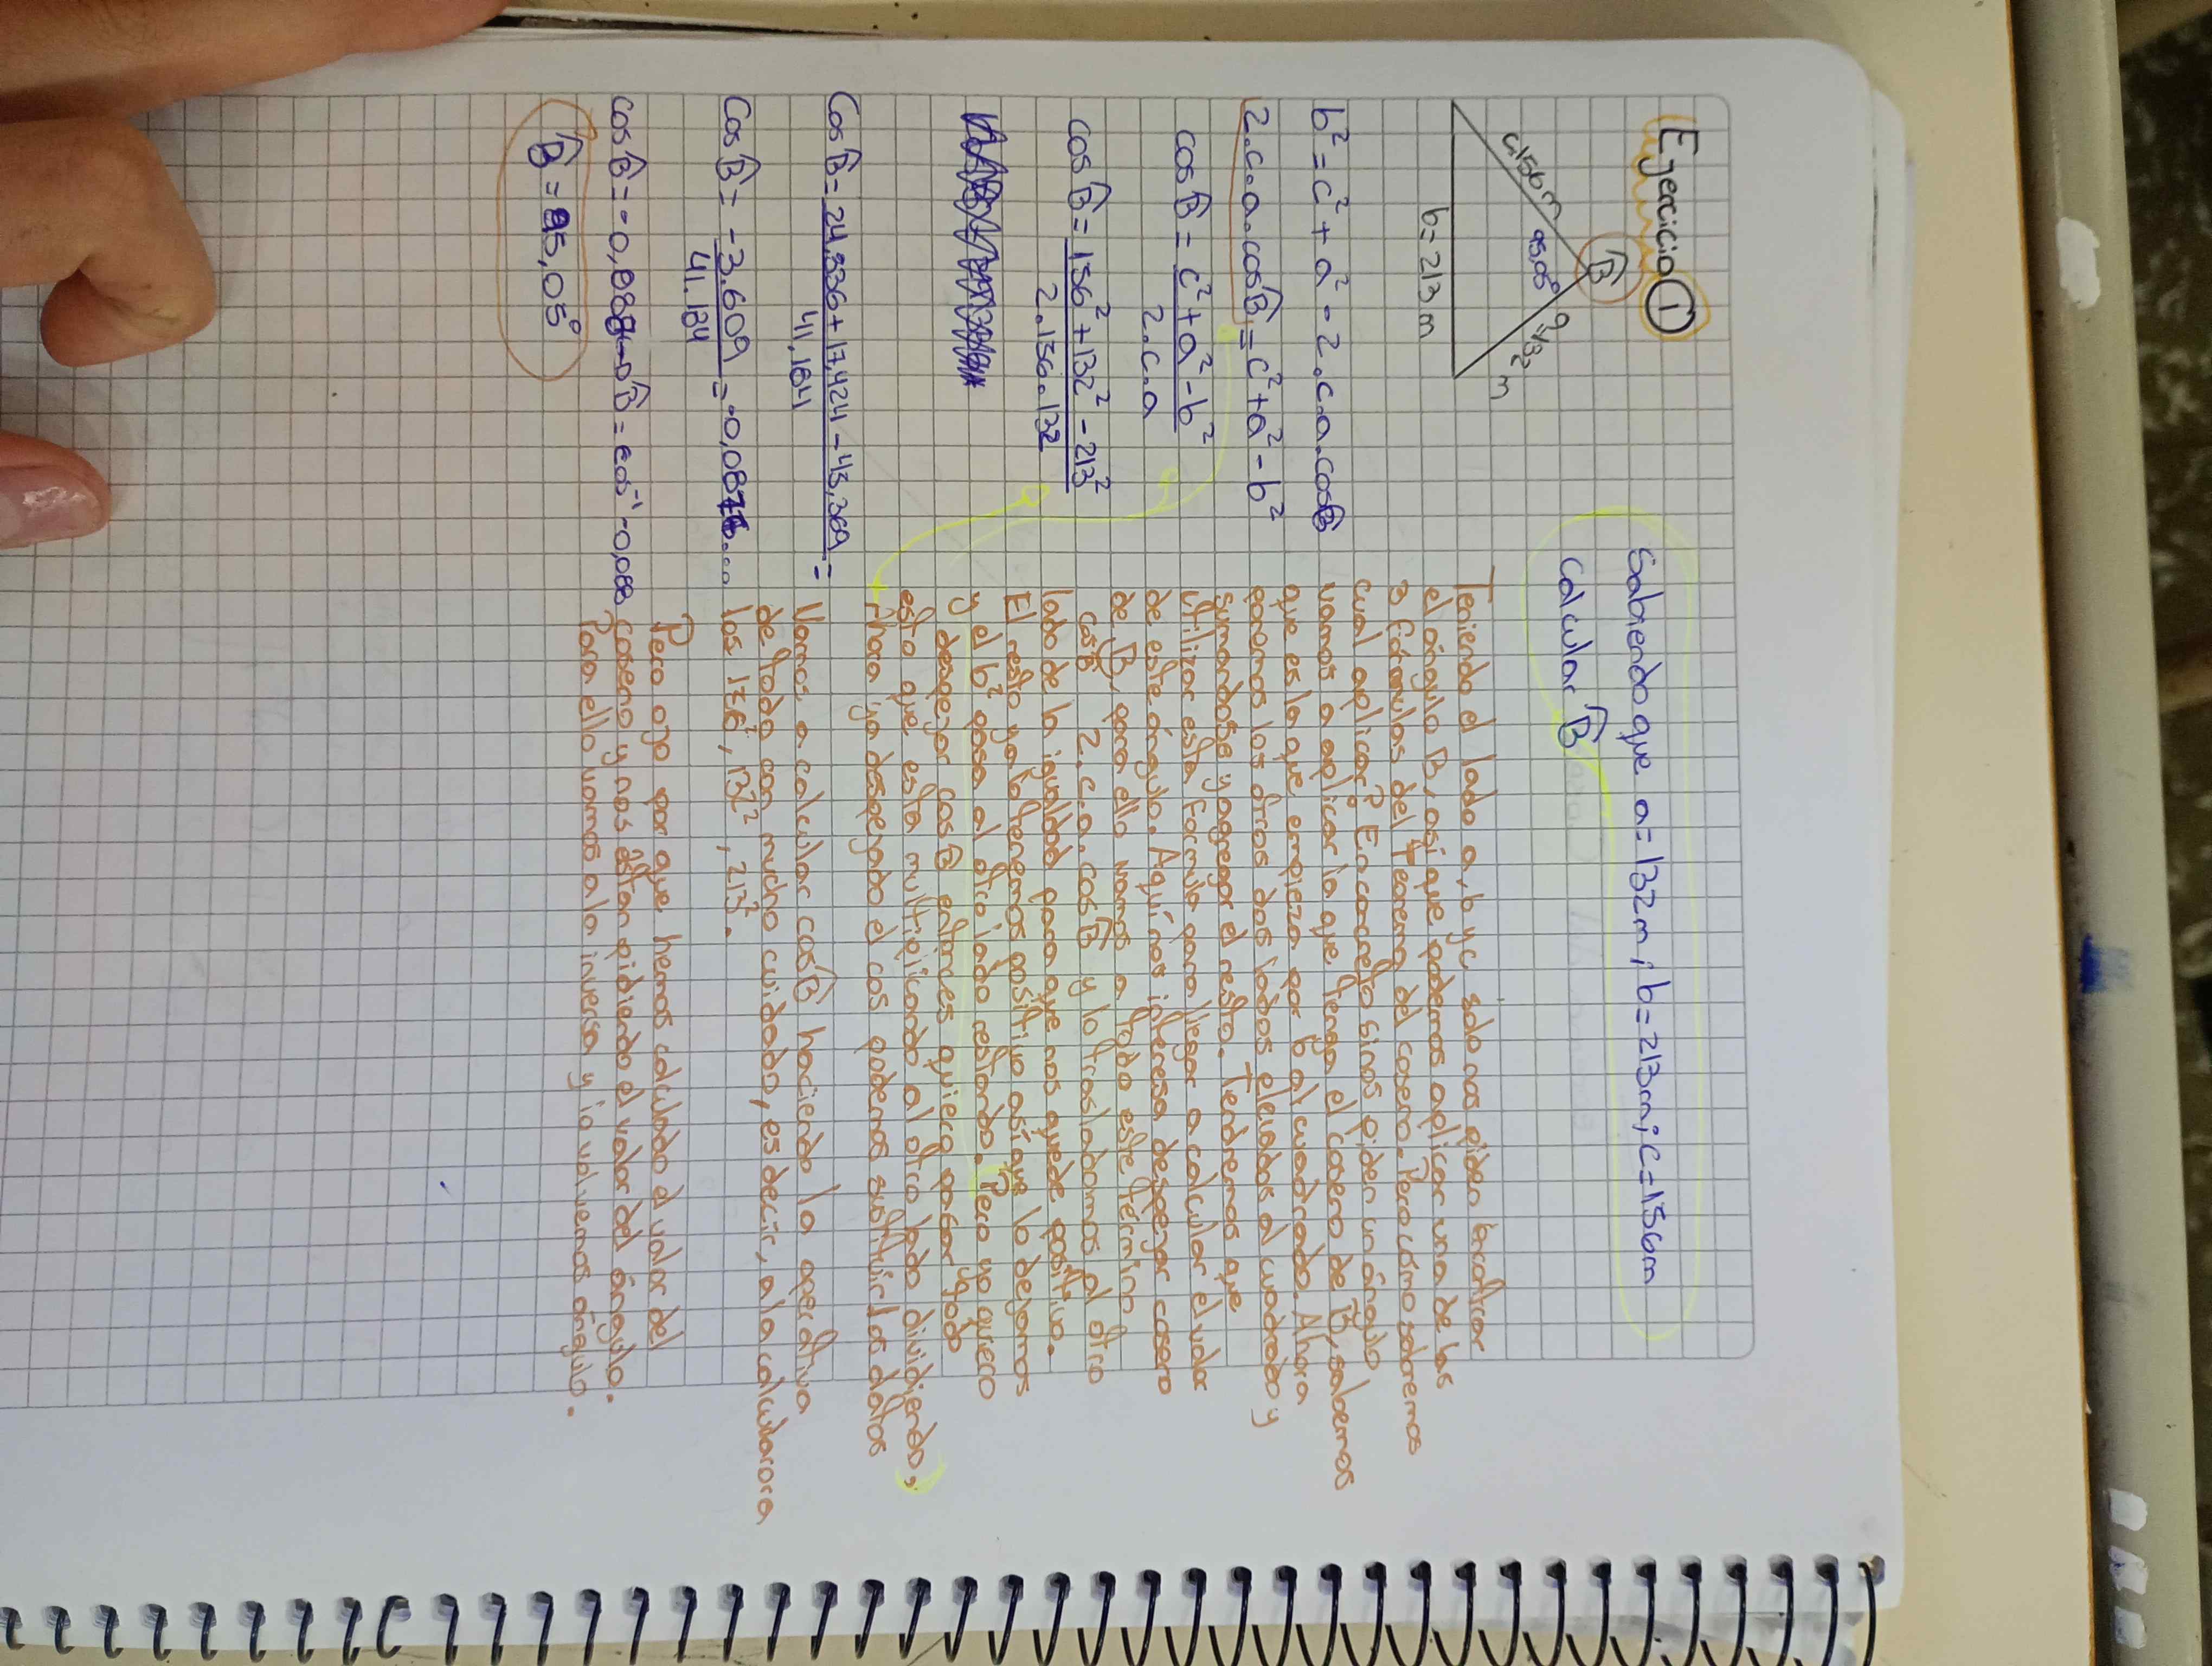 Ejercicio 1
Sabiendo que a=132m; b=213m; c=156m
calcular B̂
B̂
c:156m
95,05°
a=132 m
b=213 m
b² = c² + a² - 2.c.a.cosB̂
2.c.a.cosB̂ = c²+a²-b²
cos B̂ = c²+a²-b² / 2.c.a
cos B̂ = 156²+132²-213² / 2.156.132
Cos B̂ = 24,336+17,424-45,369 / 41,184 =
Cos B̂ = -3.609 / 41.184 = -0,0876...
cos B̂ = -0,088 → B̂ = cos⁻¹ -0,088
B̂ = 95,05°
Teniendo el lado a, b y c solo nos piden localizar
el ángulo B, asi que podemos aplicar una de las
3 fórmulas del Teorema del coseno. Pero cómo sabremos
cual aplicar? En concreto si nos piden un ángulo
vamos a aplicar la que tenga el coseno de B̂, sabemos
que es la que empieza por b al cuadrado. Ahora
ponemos los otros dos lados elevados al cuadrado y
sumandose y agregar el resto. Tendremos que
utilizar esta fórmula para llegar a calcular el valor
de este ángulo. Aquí nos interesa despejar coseno
de B, para ello vamos a todo este término
cosB̂ 2.c.a.cosB̂ y lo trasladamos al otro
lado de la igualdad para que nos quede positivo.
El resto ya lo tenemos positivo asique lo dejamos
y el b² pasa al otro lado restando. Pero yo quiero
y despejar cosB̂ entonces quiero quitar todo
esto que esta multiplicando al otro lado dividiendo,
Ahora ya despejado el cos podemos sustituir los datos
Vamos a calcular cosB̂ haciendo la operativa
de todo con mucho cuidado, es decir, a la calculadora
los 156², 132², 213².
Pero ojo por que hemos calculado el valor del
coseno y nos están pidiendo el valor del ángulo.
Para ello vamos a la inversa y lo volvemos ángulo.